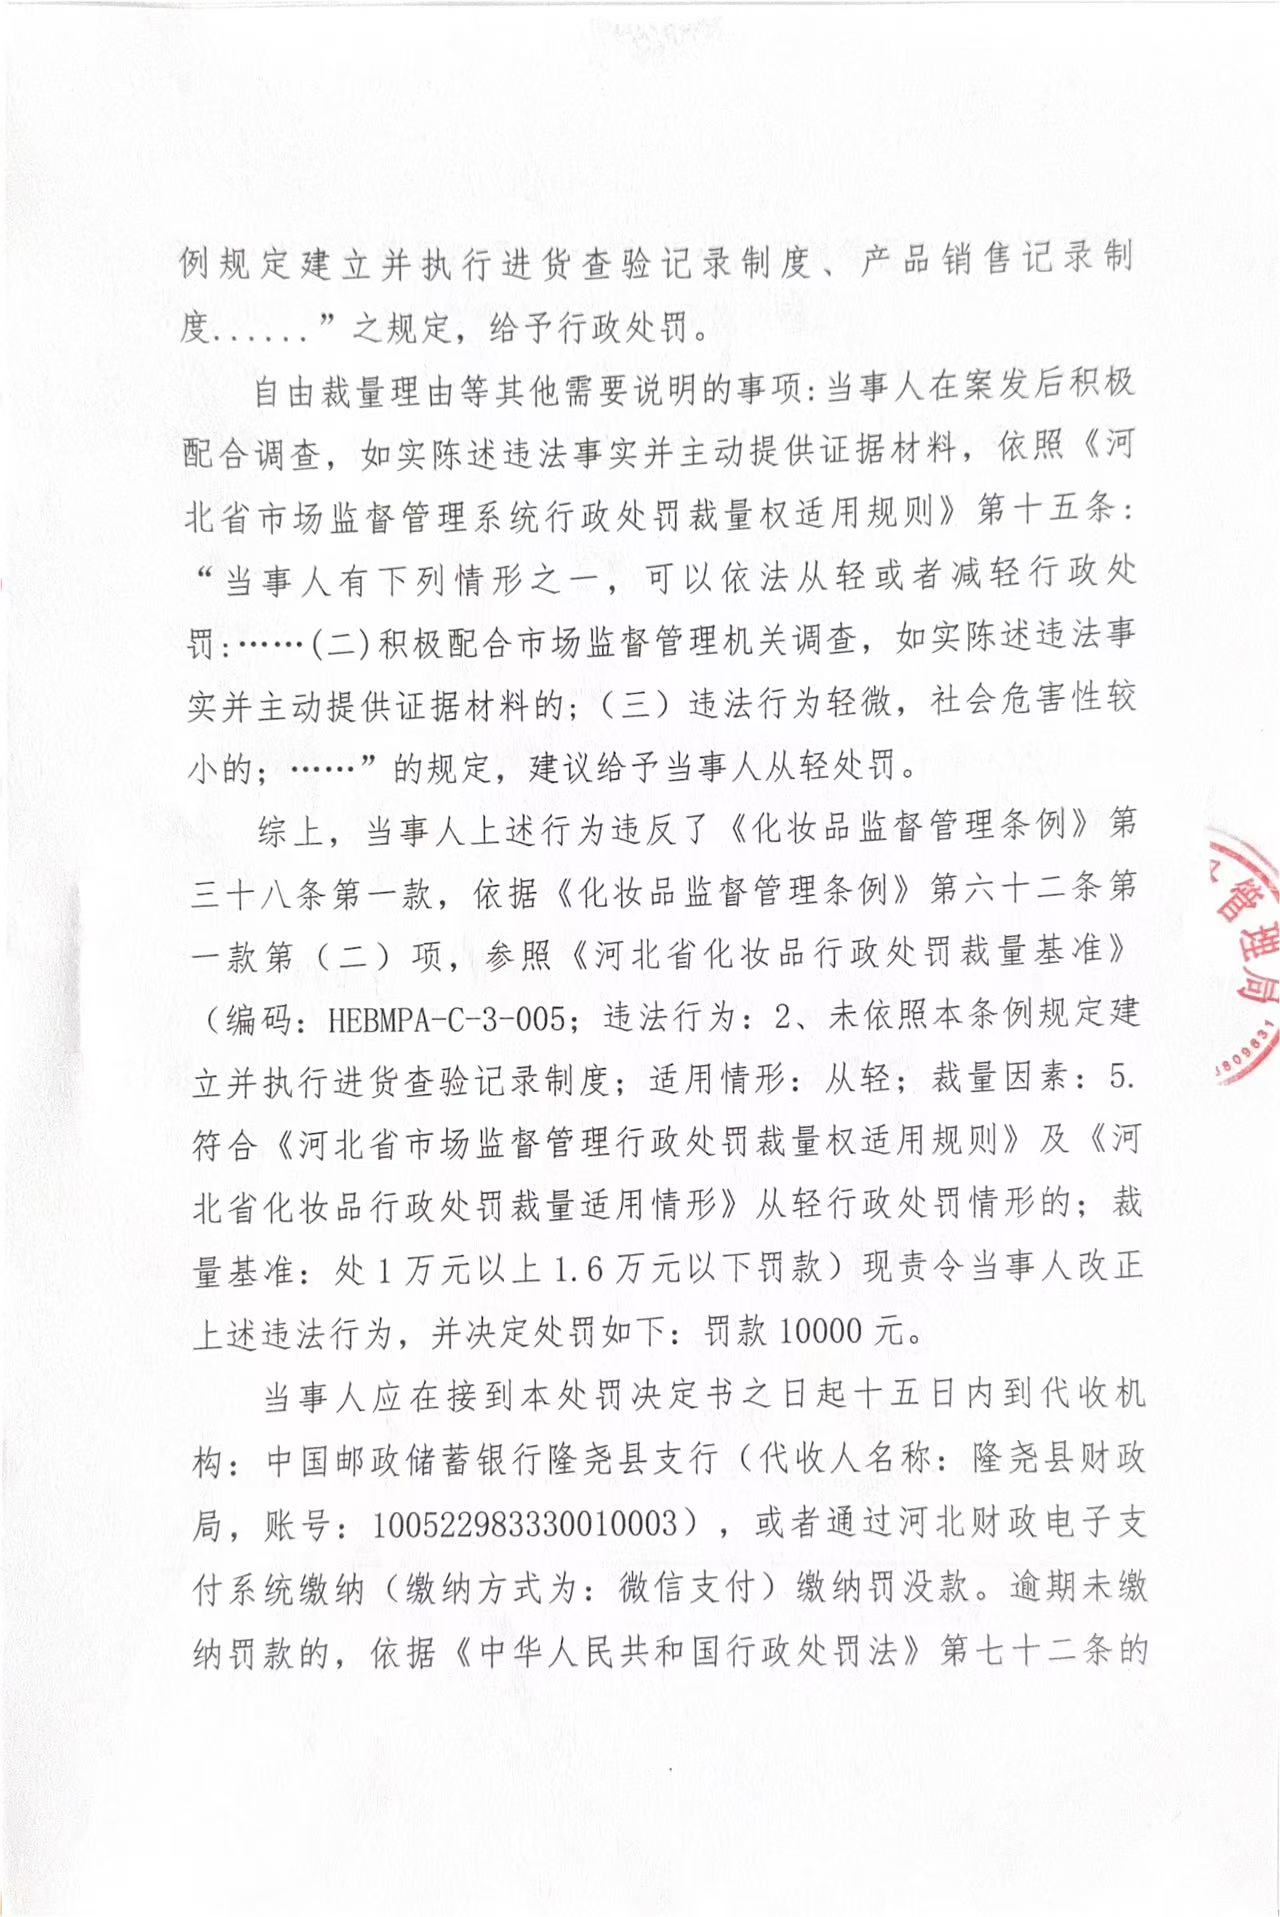 例规定建立并执行进货查验记录制度、产品销售记录制
度......”之规定，给予行政处罚。
自由裁量理由等其他需要说明的事项:当事人在案发后积极
配合调查，如实陈述违法事实并主动提供证据材料，依照《河
北省市场监督管理系统行政处罚裁量权适用规则》第十五条:
“当事人有下列情形之一，可以依法从轻或者减轻行政处
罚:……(二)积极配合市场监督管理机关调查，如实陈述违法事
实并主动提供证据材料的;（三）违法行为轻微，社会危害性较
小的；……”的规定，建议给予当事人从轻处罚。
综上，当事人上述行为违反了《化妆品监督管理条例》第
三十八条第一款，依据《化妆品监督管理条例》第六十二条第
一款第（二）项，参照《河北省化妆品行政处罚裁量基准》
（编码：HEBMPA-C-3-005；违法行为：2、未依照本条例规定建
立并执行进货查验记录制度；适用情形：从轻；裁量因素：5.
符合《河北省市场监督管理行政处罚裁量权适用规则》及《河
北省化妆品行政处罚裁量适用情形》从轻行政处罚情形的；裁
量基准：处1万元以上1.6万元以下罚款）现责令当事人改正
上述违法行为，并决定处罚如下：罚款10000元。
当事人应在接到本处罚决定书之日起十五日内到代收机
构：中国邮政储蓄银行隆尧县支行（代收人名称：隆尧县财政
局，账号：100522983330010003），或者通过河北财政电子支
付系统缴纳（缴纳方式为：微信支付）缴纳罚没款。逾期未缴
纳罚款的，依据《中华人民共和国行政处罚法》第七十二条的
管理局
809631